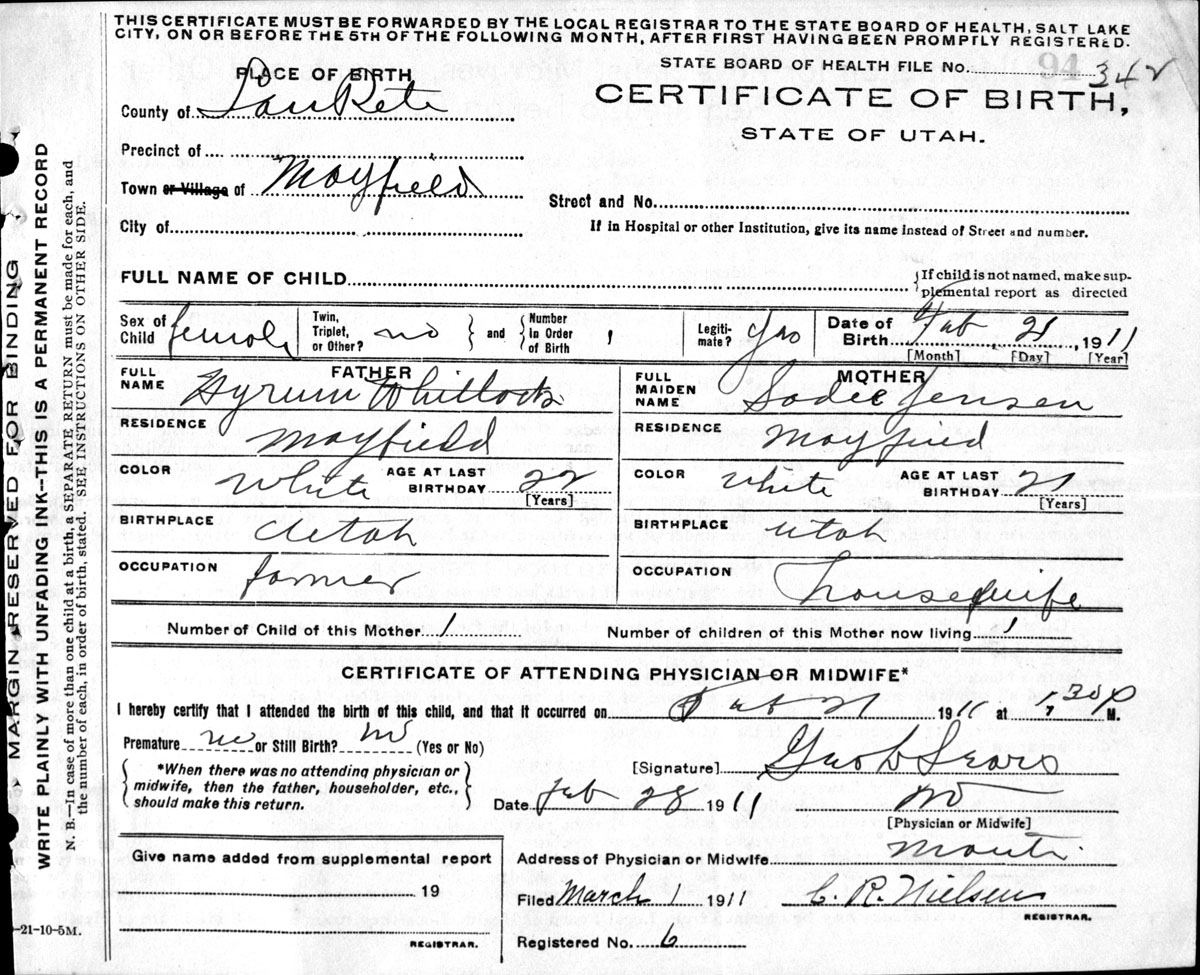 THIS CERTIFICATE MUST BE FORWARDED BY THE LOCAL REGISTRAR TO THE STATE BOARD OF HEALTH, SALT LAKE
CITY, ON OR BEFORE THE 5TH OF THE FOLLOWING MONTH, AFTER FIRST HAVING BEEN PROMPTLY REGISTERED.
STATE BOARD OF HEALTH FILE NO. 94 342
CERTIFICATE OF BIRTH,
STATE OF UTAH.
PLACE OF BIRTH
County of SanPete
Precinct of
Town or Village of Mayfield
City of
Street and No.
If in Hospital or other Institution, give its name instead of Street and number.
FULL NAME OF CHILD
If child is not named, make sup-
plemental report as directed
Sex of Child female
Twin, Triplet, or Other? no and Number In Order of Birth 1
Legiti-mate? yes
Date of Birth Feb 21, 1911
[Month] [Day] [Year]
FATHER
FULL NAME Hyrum Whitlock
RESIDENCE Mayfield
COLOR White AGE AT LAST BIRTHDAY 22
[Years]
BIRTHPLACE Utah
OCCUPATION farmer
MOTHER
FULL MAIDEN NAME Sadee Jensen
RESIDENCE Mayfield
COLOR White AGE AT LAST BIRTHDAY 21
[Years]
BIRTHPLACE Utah
OCCUPATION housewife
Number of Child of this Mother 1 Number of children of this Mother now living 1
CERTIFICATE OF ATTENDING PHYSICIAN OR MIDWIFE*
I hereby certify that I attended the birth of this child, and that it occurred on Feb 21 1911 at 1 30 P M.
Premature no or Still Birth? no (Yes or No)
*When there was no attending physician or
midwife, then the father, householder, etc.,
should make this return.
[Signature] Geo W Sears
Date Feb 28 1911 MD
[Physician or Midwife]
Give name added from supplemental report
19
REGISTRAR.
Address of Physician or Midwife Manti
Filed March 1 1911 C. R. Nielsen
REGISTRAR.
Registered No. 6
MARGIN RESERVED FOR BINDING
WRITE PLAINLY WITH UNFADING INK--THIS IS A PERMANENT RECORD
N. B.—In case of more than one child at a birth, a SEPARATE RETURN must be made for each, and
the number of each, in order of birth, stated. SEE INSTRUCTIONS ON OTHER SIDE.
-21-10-5M.